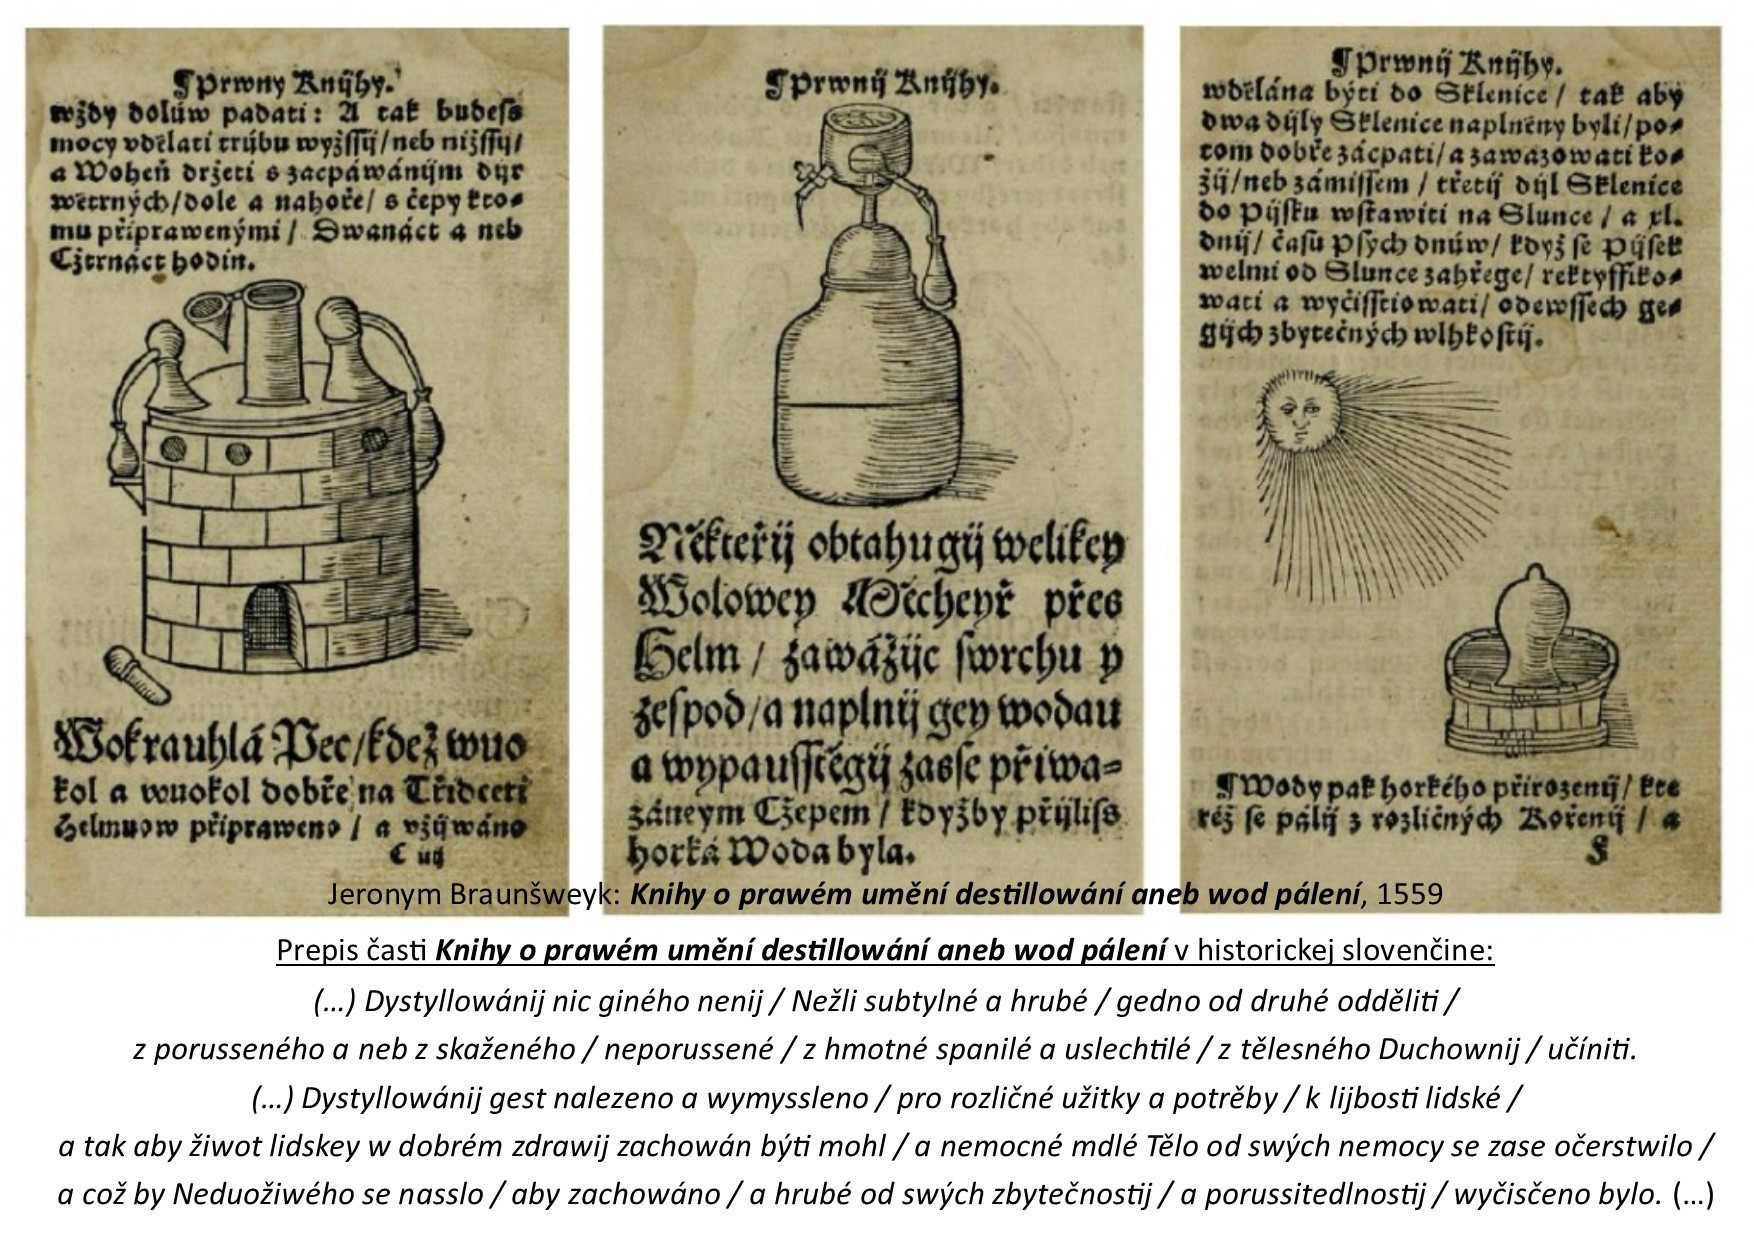 ¶Prwny Knijhy.
wždy dolúw padati: A tak budeſs
mocy vdělati trúbu wyžſſij/neb nižſſij/
a Woheň držeti s zacpáwánijm dyr
wětrných/dole a nahoře/ s čepy kto⸗
mu připrawenými / Dwanáct a neb
Cžtrnáct hodin.
Wokrauhlá Pec/kdež wuo
kol a wuokol dobře na Třidceti
Helmuow připraweno / a vžijwáno
¶Prwnij Knijhy.
Někteřij obtahugij welikey
Wolowey Měcheyř přes
Helm / zawážijc ſwrchu y
zeſpod/a naplnij gey wodau
a wypauſſtěgij zaſſe přiwa⸗
záneym Cžepem / kdyžby přijliſs
horká Woda byla.
¶Prwnij Knijhy.
wdělána býti do Sklenice / tak aby
dwa dijly Sklenice naplněny byli/po⸗
tom dobře zácpati/a zawazowati ko⸗
žij/neb zámiſſem / třetij dijl Sklenice
do Pijſku wſtawiti na Slunce / a xl.
dnij/ čaſu Pſých dnúw/ když ſe Pijſek
welmi od Slunce zahřege/ rektyffiko⸗
wati a wyčiſſtiowati/ odewſſech ge⸗
gijch zbytečných wlhkoſtij.
¶Wody pak horkého přirozenij/ kte
réž ſe pálij z rozličných Kořenij / a
Jeronym Braunšweyk: Knihy o prawém umění destillowání aneb wod pálení, 1559
Prepis časti Knihy o prawém umění destillowání aneb wod pálení v historickej slovenčine:
(…) Dystyllowánij nic giného nenij / Nežli subtylné a hrubé / gedno od druhé odděliti /
z porusseného a neb z skaženého / neporussené / z hmotné spanilé a uslechtilé / z tělesného Duchownij / učíniti.
(…) Dystyllowánij gest nalezeno a wymyssleno / pro rozličné užitky a potrěby / k lijbosti lidské /
a tak aby žiwot lidskey w dobrém zdrawij zachowán býti mohl / a nemocné mdlé Tělo od swých nemocy se zase očerstwilo /
a což by Neduožiwého se nasslo / aby zachowáno / a hrubé od swých zbytečnostij / a porussitedlnostij / wyčisčeno bylo. (…)